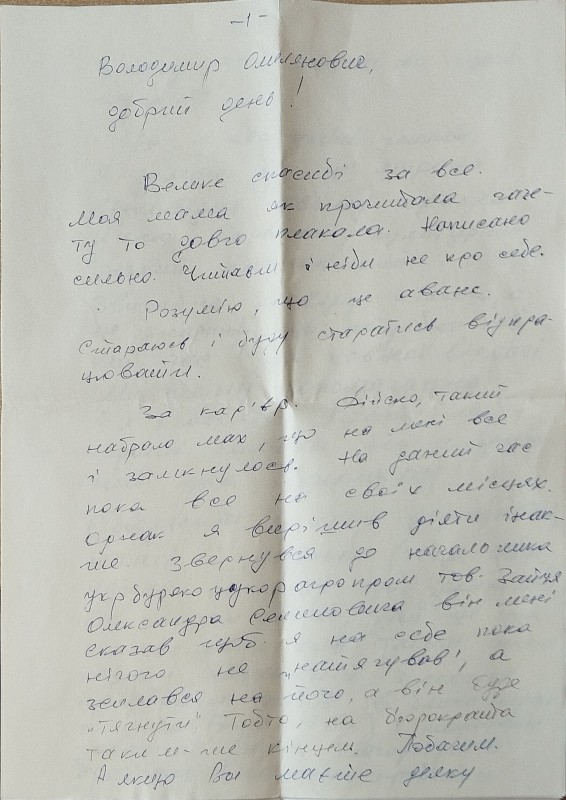 -1-
Володимир Омелянович,
добрий день!
Велике спасибі за все.
Моя мама як прочитала газе-
ту то довго плакала. Написано
сильно. Читаєш і ніби не про себе.
Розумію, що це аванс.
Стараюсь і буду старатись відпра-
цювати.
За кар'єр. Дійсно, такий
набрало мах, що на мені все
і замкнулось. На даний час
пока все на своїх місцях.
Однак я вирішив діяти інак-
ше звернувся до начальника
укрбурякоцукорагропром тов. Зайця
Олександра Семеновича він мені
сказав щоб я на себе пока
нічого не „натягував", а
зсилався на його, а він буде
„тягнути" Тобто, на бюрократа
таким-же кінцем. Побачим.
А якщо Ви маєте деяку